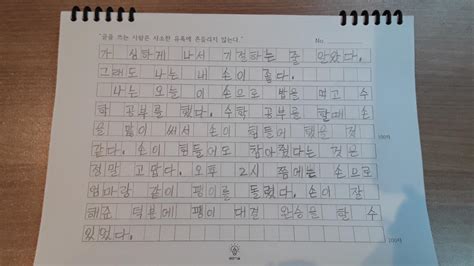 "글을 쓰는 사람은 사소한 유혹에 흔들리지 않는다."
No.
가 심하게 나서 기절하는 줄 알았다.
그래도 나는 내 손이 좋다.
나는 오늘 이 손으로 밥을 먹고 수
학 공부를 했다. 수학 공부를 할때 손
을 많이 써서 손이 힘들어 했을 것
100자
같다. 손이 힘들어도 참아줬다는 것은
정말 고맙다. 오후 2시 쯤에는 손으로
엄마랑 같이 팽이를 돌렸다. 손이 잘
해준 덕분에 팽이 대결 완승을 할 수
있었다.
200자